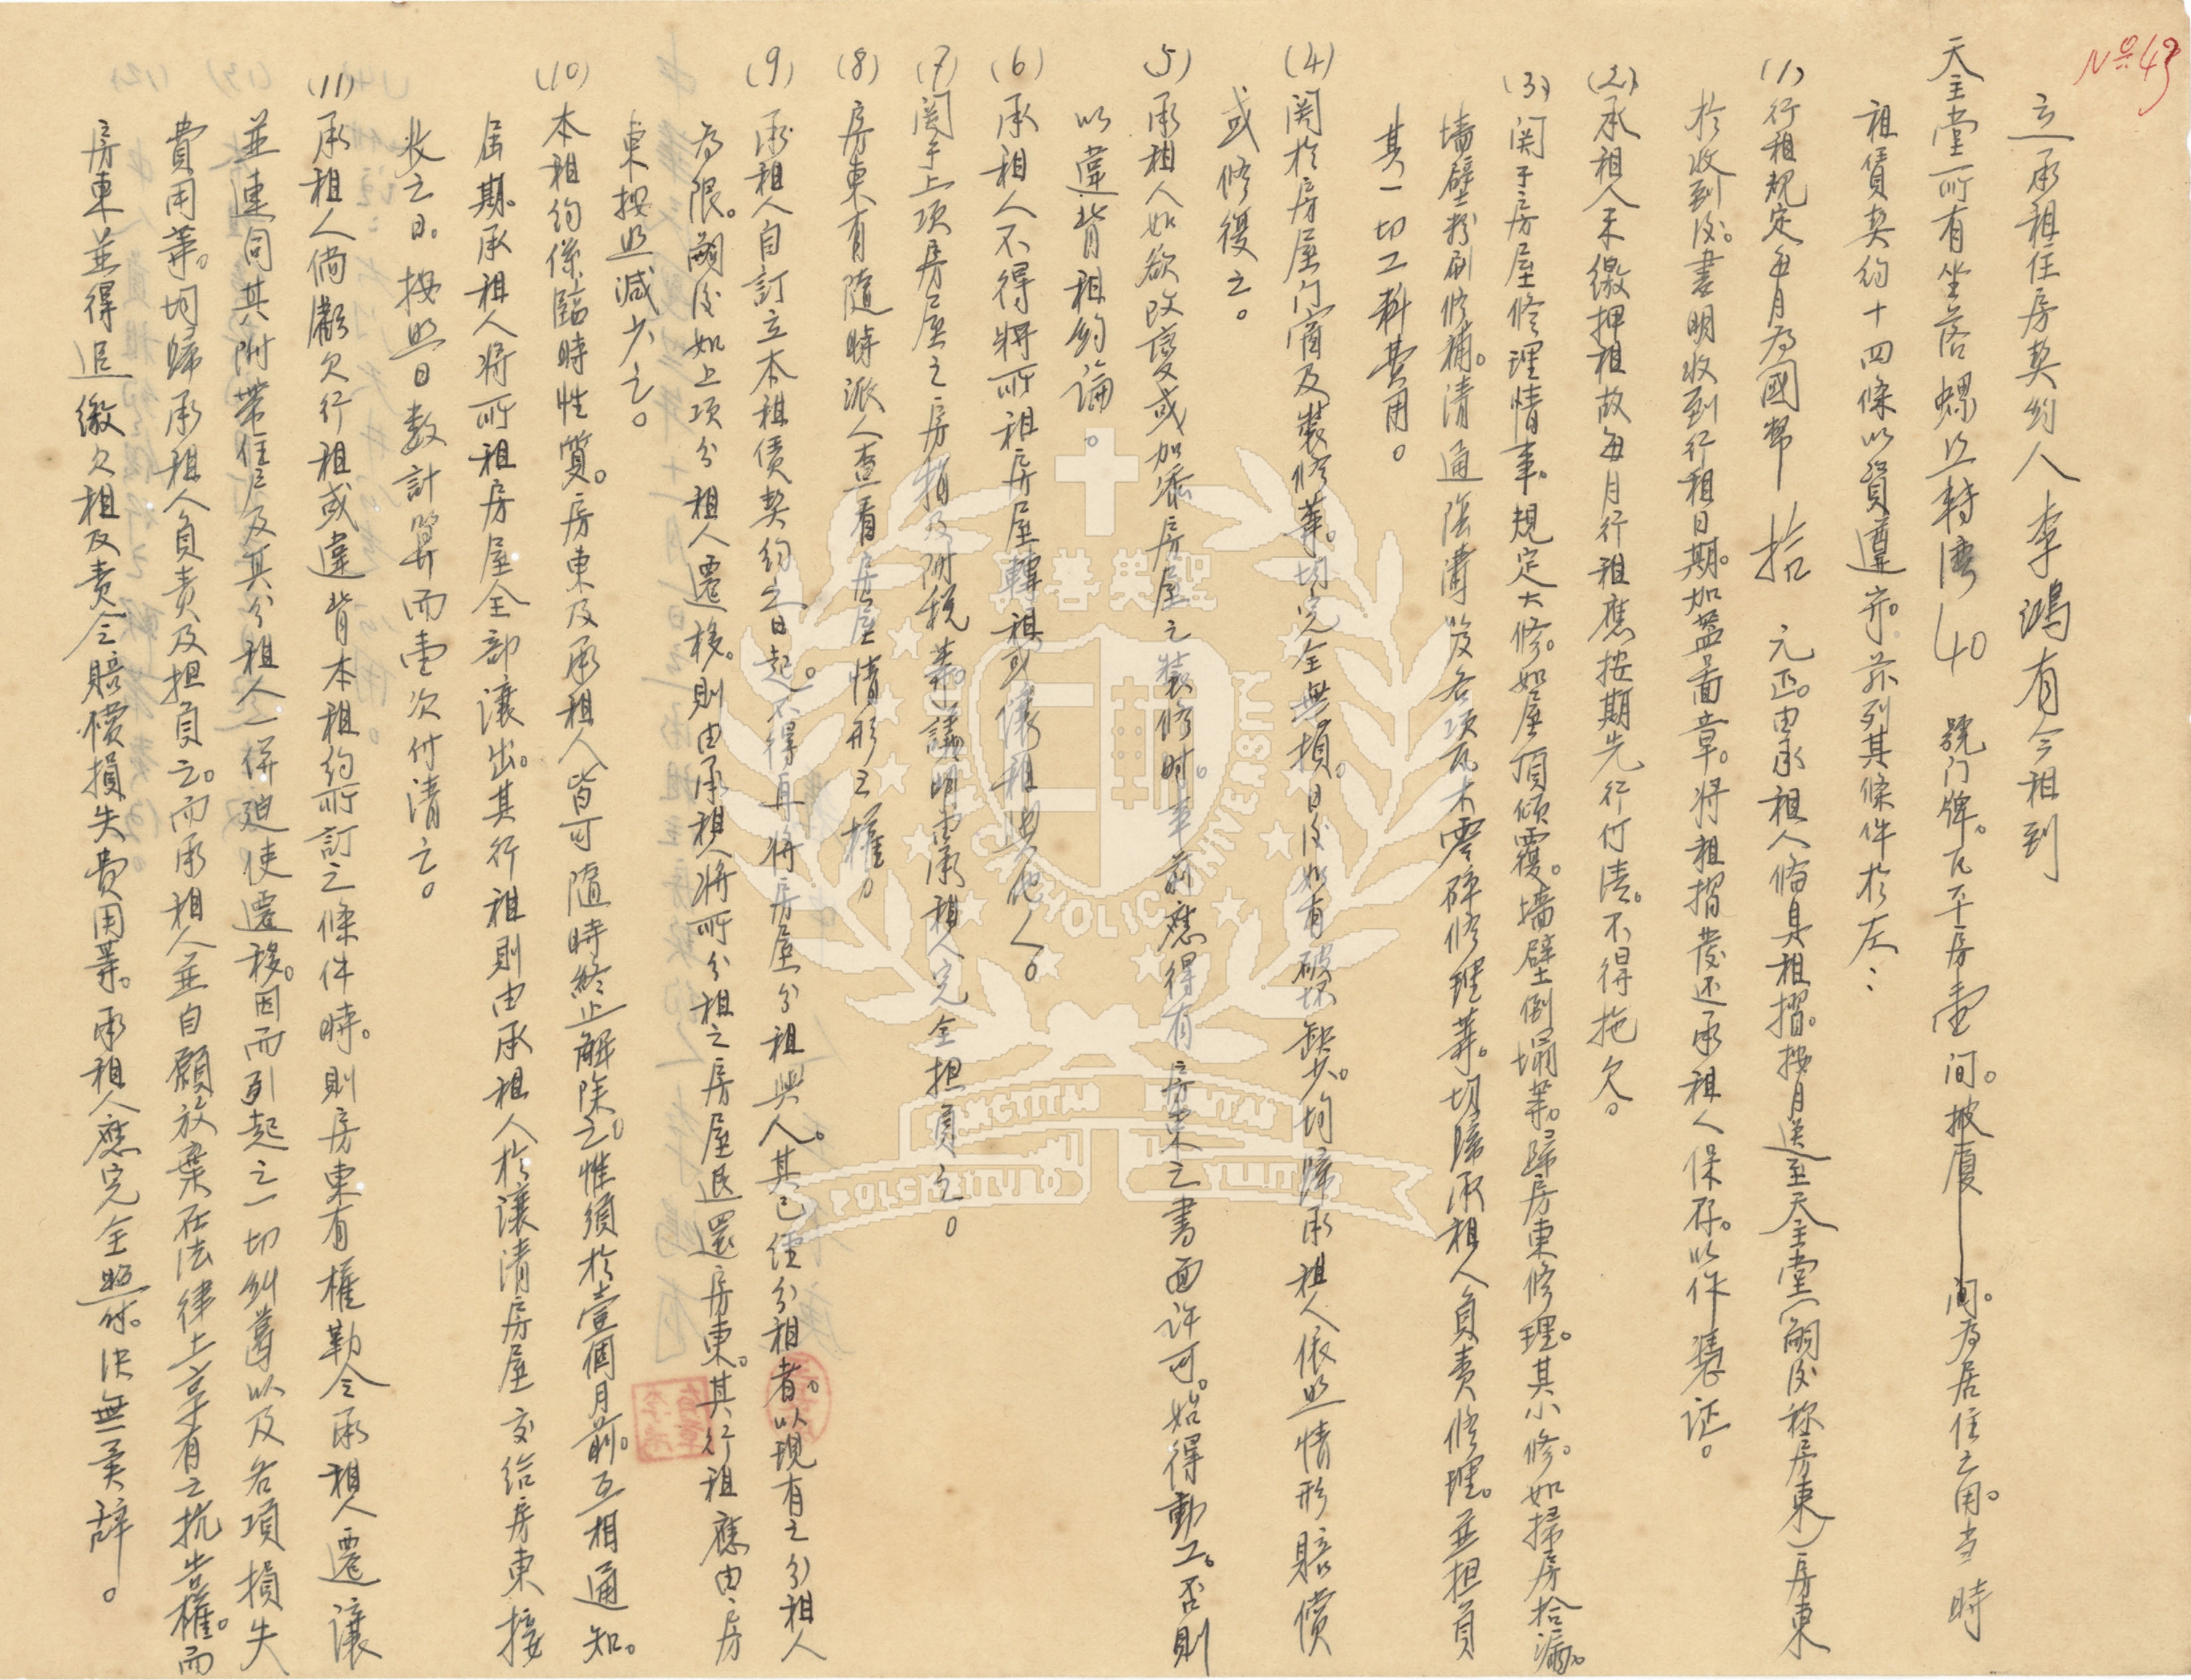 No 43
立承租住房契約人李鴻有今租到
天主堂所有坐落螺丝轉湾40號门牌。瓦平房壹间。披廈——间。为居住之用。当時
租賃契約十四條以資遵守。茲列其條件於左：
(1)行租規定每月为國幣拾元正。由承租人备具租摺。按月送至天主堂（嗣後称房東）房東
於收到後。書明收到行租日期。加蓋圖章。将租摺发还承租人保存。以作憑证。
(2)承租人未缴押租故每月行租應按期先行付清。不得拖欠。
(3)関于房屋修理情事。規定大修。如屋頂傾覆。墙壁倒塌等。歸房東修理。其小修。如掃房拾漏。
墙壁粉刷修補。清通陰溝以及各项瓦木零碎修理等。切歸承租人負责修理。並担負
其一切工料費用。
(4)関於房屋门窗及裝修等。均完全無損。日後如有破坏缺少。均歸承租人依照情形賠償
或修復之。
(5)承租人如欲改变或加添房屋之裝修时。事前應得有房東之書面许可。始得動工。否則
以違背租約論。
(6)承租人不得将所租房屋轉租或讓租與他人。
(7)関于上项房屋之房捐及附税等。議明由承租人完全担負之。
(8)房東有随時派人查看房屋情形之權。
(9)承租人自訂立本租賃契約之日起。不得再将房屋分租與人。其已经分租者。以現有之分租人
为限。嗣後如上项分租人遷移。則由承租人将所分租之房屋退還房東。其行租應由房
東按照减少之。
(10)本租約係臨時性質。房東及承租人皆可隨時終止解除之。惟須於壹個月前。互相通知。
届期承租人将所租房屋全部讓出。其行租則由承租人於讓清房屋交给房東接
收之日。按照日数計算而壹次付清之。
(11)承租人倘虧欠行租或違背本租約所訂之條件時。則房東有權勒令承租人遷讓
並連同其附带住户及其分租人一併迫使遷移。因而引起之一切糾葛以及各項損失
費用等。均歸承租人負责及担負之。而承租人並自願放棄在法律上享有之抗告權。而
房東並得追缴欠租及责令賠償損失費用等。承租人應完全照付。决無異辞。